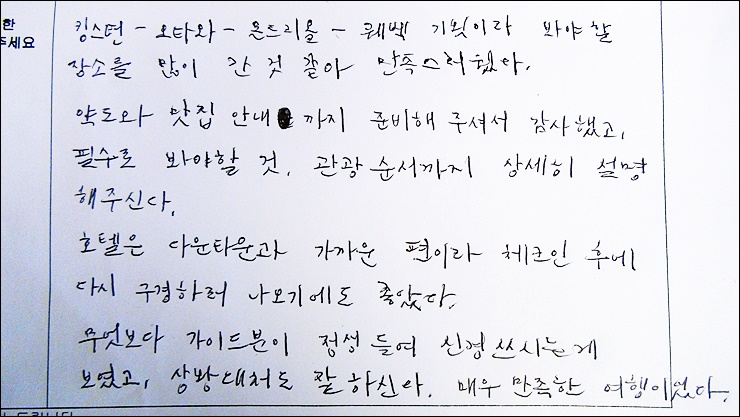 한
주세요
킹스턴 - 오타와 - 몬트리올 - 퀘벡 기웟이라 봐야 할
장소를 많이 간 것 같아 만족스러웠다.
약도와 맛집 안내 까지 준비해 주셔서 감사했고,
필수로 봐야할 것, 관광 순서까지 상세히 설명
해주신다.
호텔은 다운타운과 가까운 편이라 체크인 후에
다시 구경하러 나오기에도 좋았다.
무엇보다 가이드분이 정성 들여 신경 쓰시는게
보였고, 상황대처도 잘 하신다. 매우 만족한 여행이었다.